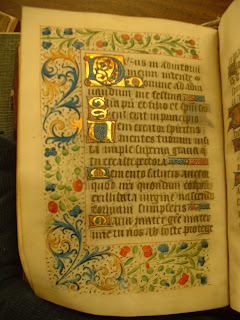 Deus in adiutoriu
meum intende
Domine ad adiu
uandum me festina
Gloria pri et filio et spiritui
Sicut erat in principio
Veni creator spiritus
mentes tuorum visi
ta imple superna gratia q
tu creasti pectora
Memento salutis auctor
quod nri quondam corporis
ex illibata virgine nascendo
formam sumpseris
Maria mater grie mater
mie tu nos ab hoste protege